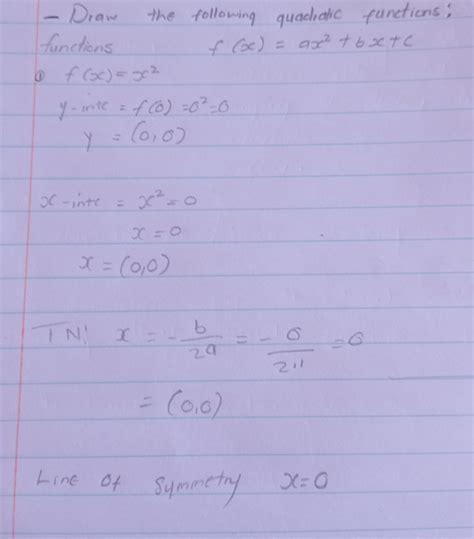 - Draw the following quadratic functions:
functions f(x) = ax² + bx + c
① f(x) = x²
y-inte = f(0) = 0² = 0
y = (0,0)
x-inte = x² = 0
x = 0
x = (0,0)
x = -b/2a = -0/2.1 = 0
= (0,0)
Line of symmetry x = 0